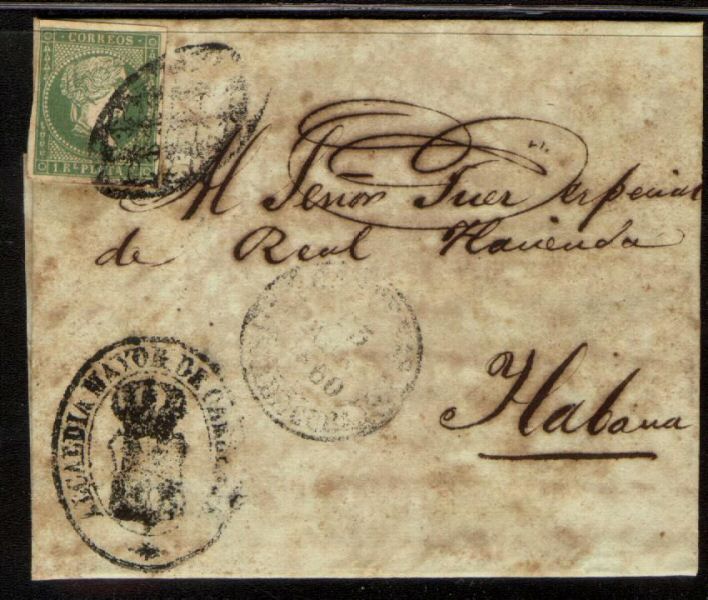 CORREOS
1 RL PLATA F.
Al Señor Juez especial
de Real Hacienda
Habana
ALCALDIA MAYOR DE
60